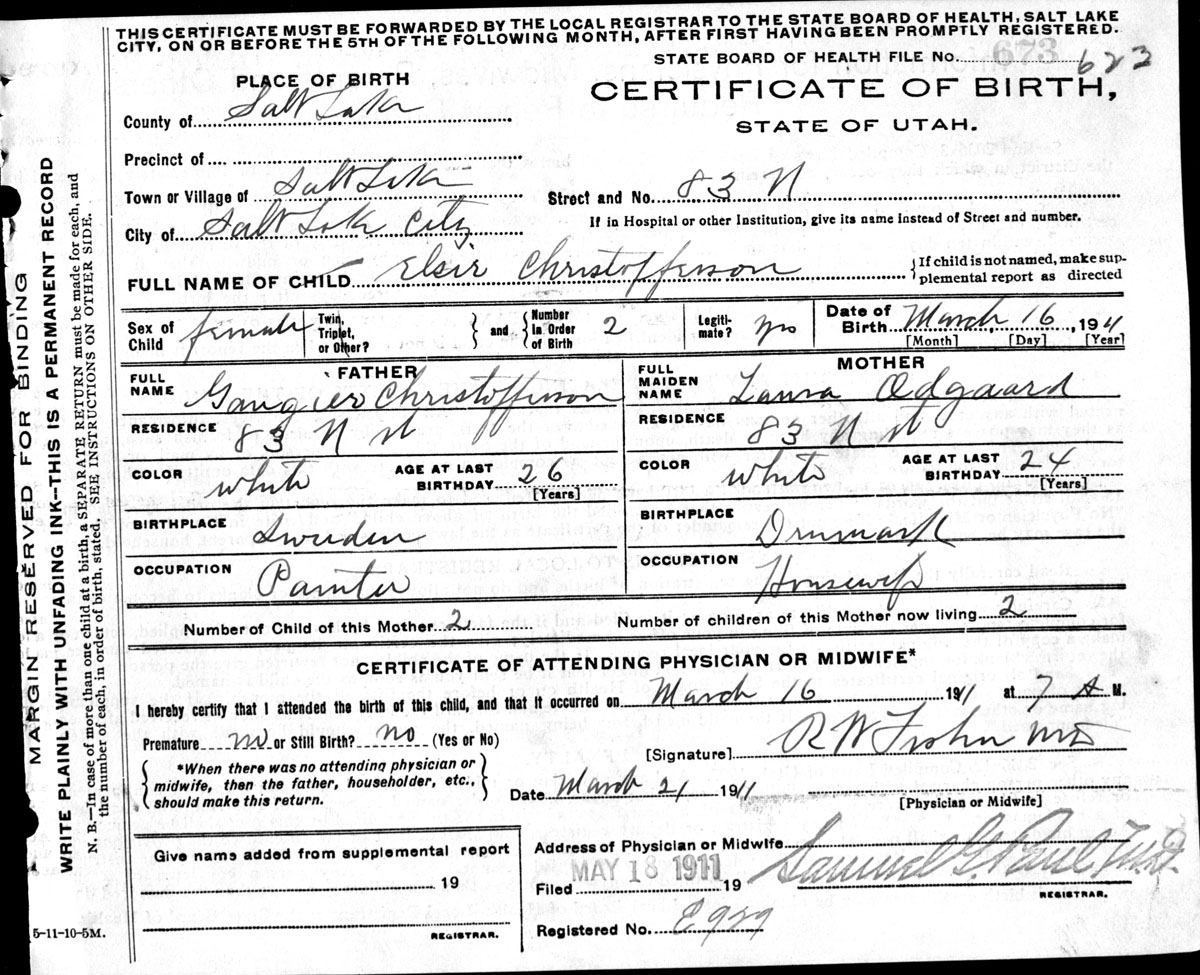 THIS CERTIFICATE MUST BE FORWARDED BY THE LOCAL REGISTRAR TO THE STATE BOARD OF HEALTH, SALT LAKE
CITY, ON OR BEFORE THE 5TH OF THE FOLLOWING MONTH, AFTER FIRST HAVING BEEN PROMPTLY REGISTERED.
STATE BOARD OF HEALTH FILE No. 673 623
PLACE OF BIRTH
CERTIFICATE OF BIRTH,
STATE OF UTAH.
County of Salt Lake
Precinct of
Town or Village of Salt Lake
Street and No. 83 N
City of Salt Lake City
If in Hospital or other Institution, give its name instead of Street and number.
FULL NAME OF CHILD Elsie Christofferson
If child is not named, make sup-
plemental report as directed
Sex of Child female
Twin, Triplet, or Other?
and Number In Order of Birth 2
Legiti-mate? yes
Date of Birth March 16, 1911
[Month] [Day] [Year]
FATHER
FULL NAME Christofferson
RESIDENCE 83 N st
COLOR white AGE AT LAST BIRTHDAY 26
[Years]
BIRTHPLACE Sweden
OCCUPATION Painter
MOTHER
FULL MAIDEN NAME Laura Odgaard
RESIDENCE 83 N st
COLOR white AGE AT LAST BIRTHDAY 24
[Years]
BIRTHPLACE Denmark
OCCUPATION Housewife
Number of Child of this Mother 2 Number of children of this Mother now living 2
CERTIFICATE OF ATTENDING PHYSICIAN OR MIDWIFE*
I hereby certify that I attended the birth of this child, and that it occurred on March 16 1911 at 7 A M.
Premature no or Still Birth? no (Yes or No)
[Signature] R W MD
*When there was no attending physician or
midwife, then the father, householder, etc.,
should make this return.
Date March 21 1911
[Physician or Midwife]
Give name added from supplemental report
19
REGISTRAR.
Address of Physician or Midwife
Filed MAY 18 1911 19 Samuel G. Paul M.D.
REGISTRAR.
Registered No. E979
5-11-10-5M.
MARGIN RESERVED FOR BINDING
WRITE PLAINLY WITH UNFADING INK--THIS IS A PERMANENT RECORD
N. B.--In case of more than one child at a birth, a SEPARATE RETURN must be made for each, and
the number of each, in order of birth, stated. SEE INSTRUCTIONS ON OTHER SIDE.